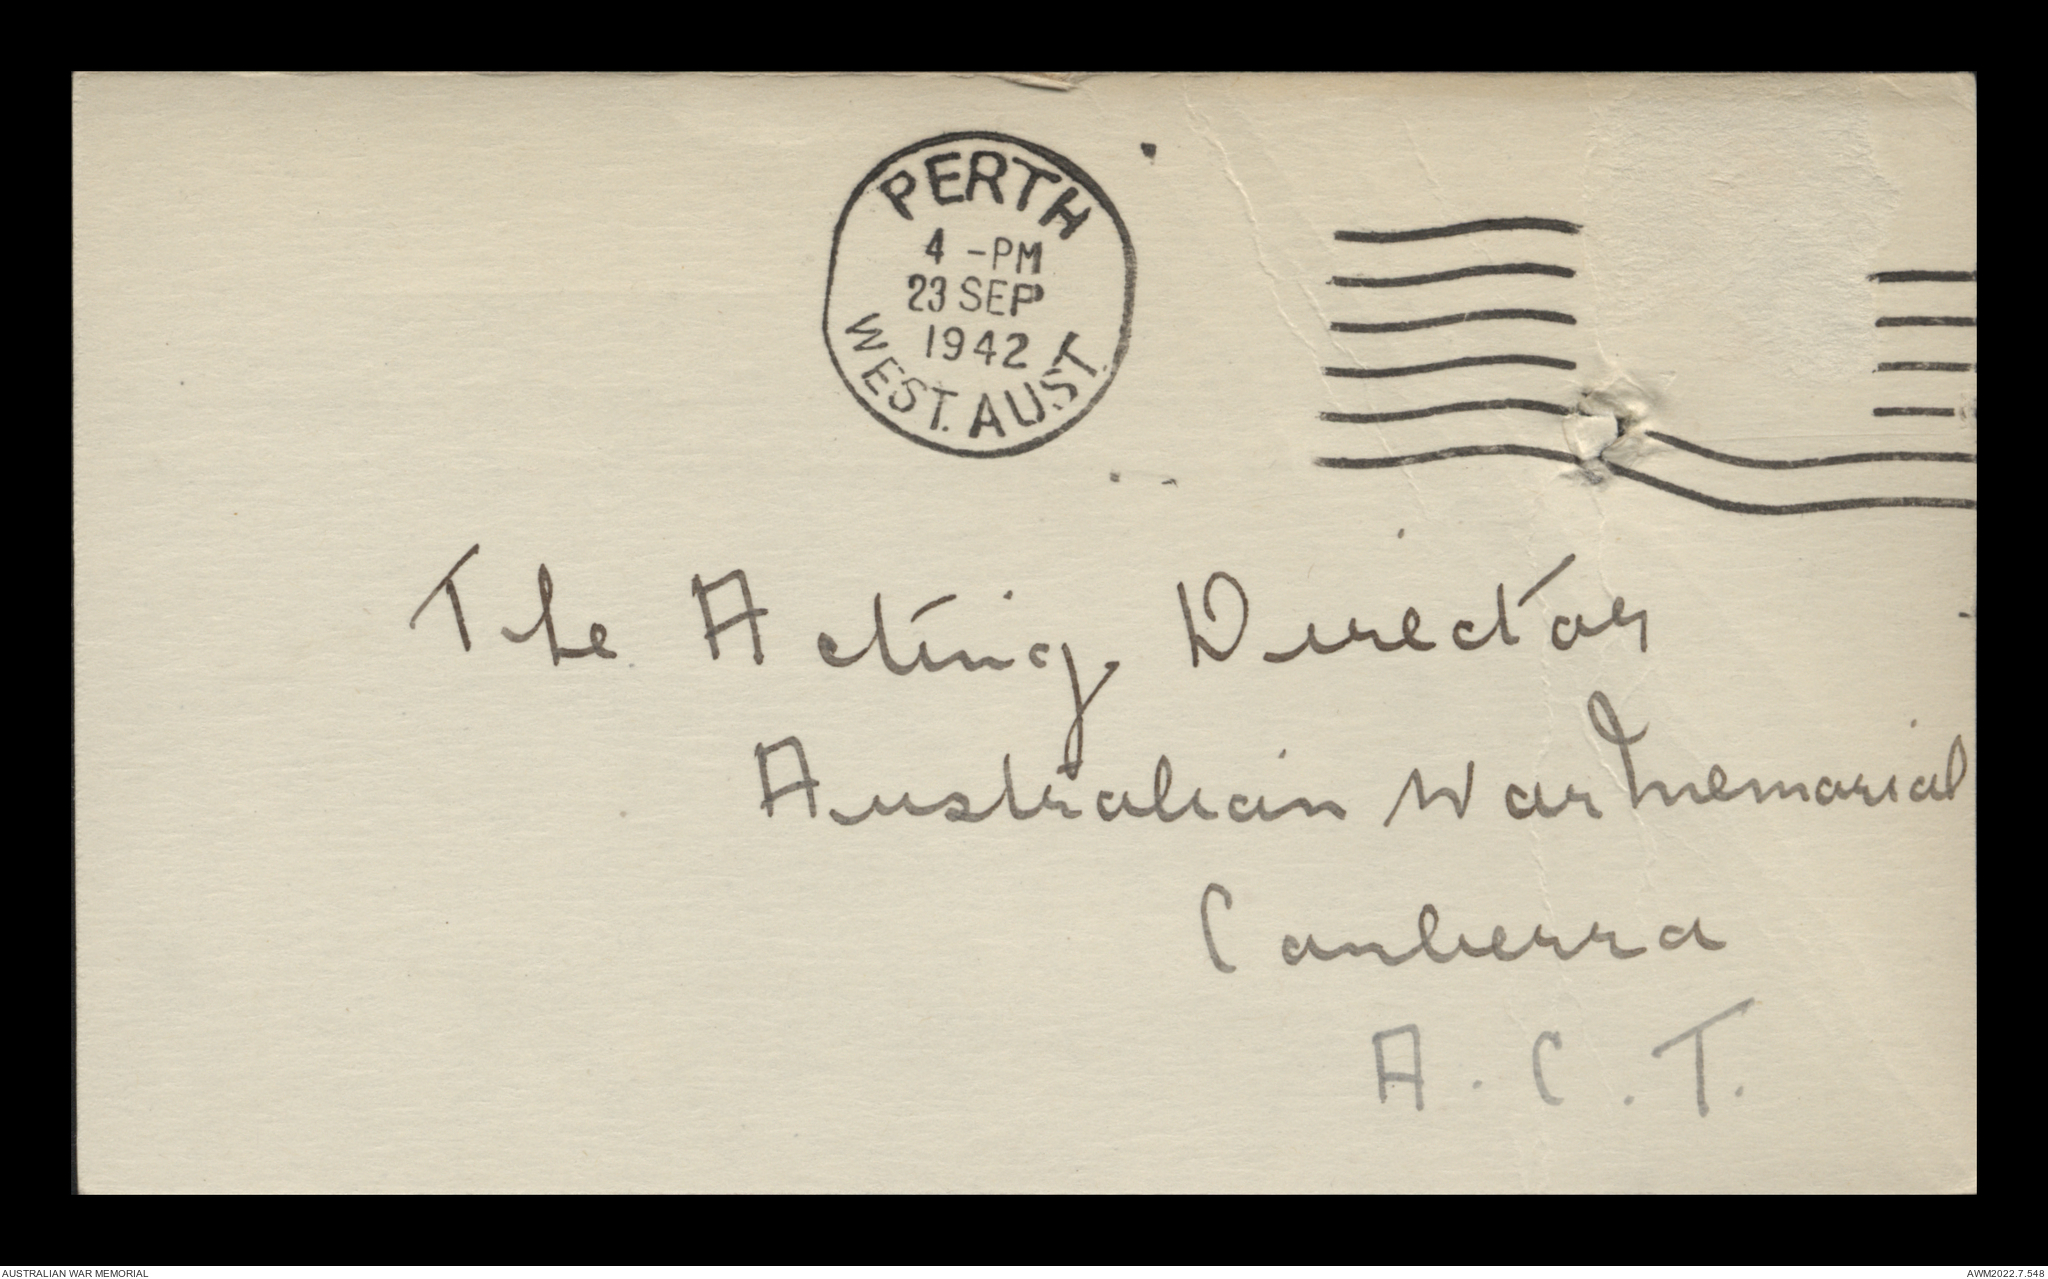 PERTH
4 -PM
23 SEP
1942
WEST. AUST.
The Acting Director
Australian War Memorial
Canberra
A.C.T.
AUSTRALIAN WAR MEMORIAL
AWM2022.7.548